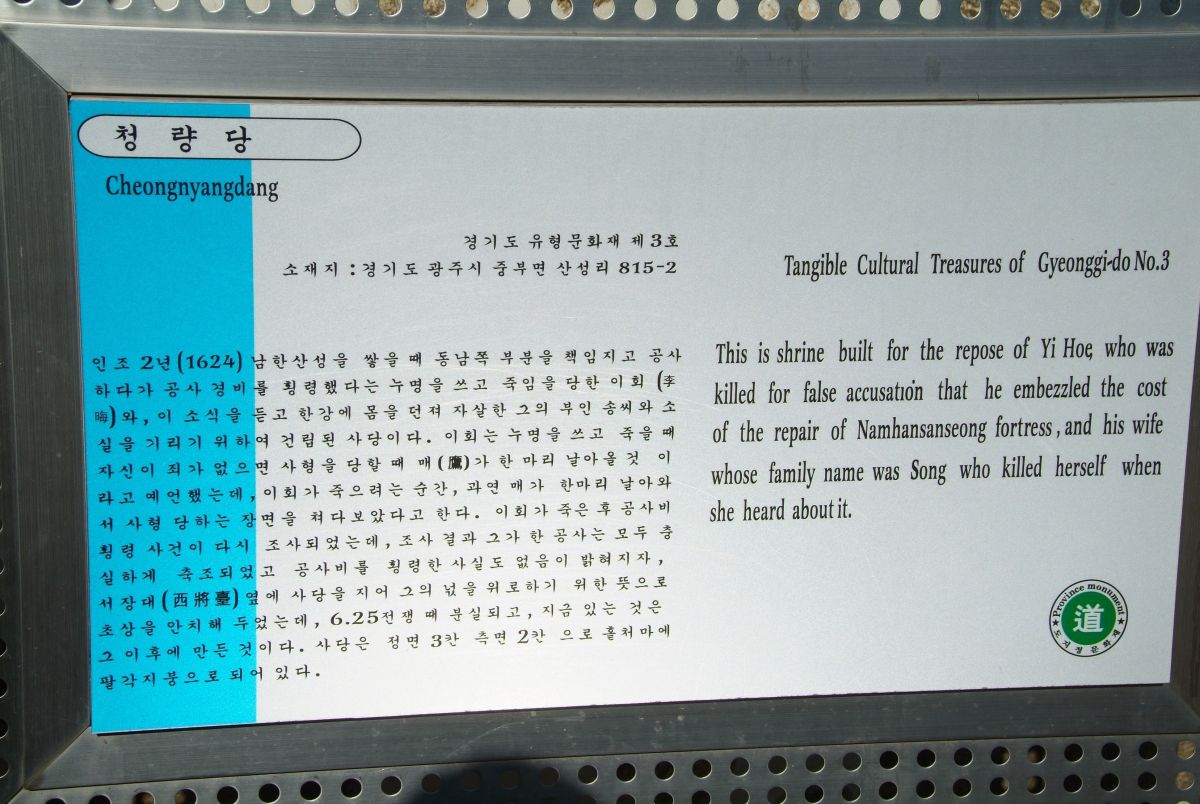 청 량 당
Cheongnyangdang
경기도 유형문화재 제3호
소재지 : 경기도 광주시 중부면 산성리 815-2
인조 2년(1624) 남한산성을 쌓을 때 동남쪽 부분을 책임지고 공사
하다가 공사 경비를 횡령했다는 누명을 쓰고 죽임을 당한 이회 (李
晦)와, 이 소식을 듣고 한강에 몸을 던져 자살한 그의 부인 송씨와 소
실을 기리기 위하여 건립된 사당이다. 이회는 누명을 쓰고 죽을 때
자신이 죄가 없으면 사형을 당할 때 매(鷹)가 한 마리 날아올 것 이
라고 예언했는데, 이회가 죽으려는 순간, 과연 매가 한마리 날아와
서 사형 당하는 장면을 쳐다보았다고 한다. 이회가 죽은 후 공사비
횡령 사건이 다시 조사되었는데, 조사 결과 그가 한 공사는 모두 충
실하게 축조되었고 공사비를 횡령한 사실도 없음이 밝혀지자,
서장대(西將臺)옆에 사당을 지어 그의 넋을 위로하기 위한 뜻으로
초상을 안치해 두었는데, 6.25전쟁 때 분실되고, 지금 있는 것은
그 이후에 만든 것이다. 사당은 정면 3칸 측면 2칸 으로 홑처마에
팔각지붕으로 되어 있다.
Tangible Cultural Treasures of Gyeonggi-do No.3
This is shrine built for the repose of Yi Hoe, who was
killed for false accusation that he embezzled the cost
of the repair of Namhansanseong fortress, and his wife
whose family name was Song who killed herself when
she heard about it.
★Province monument★
道
도지정문화재